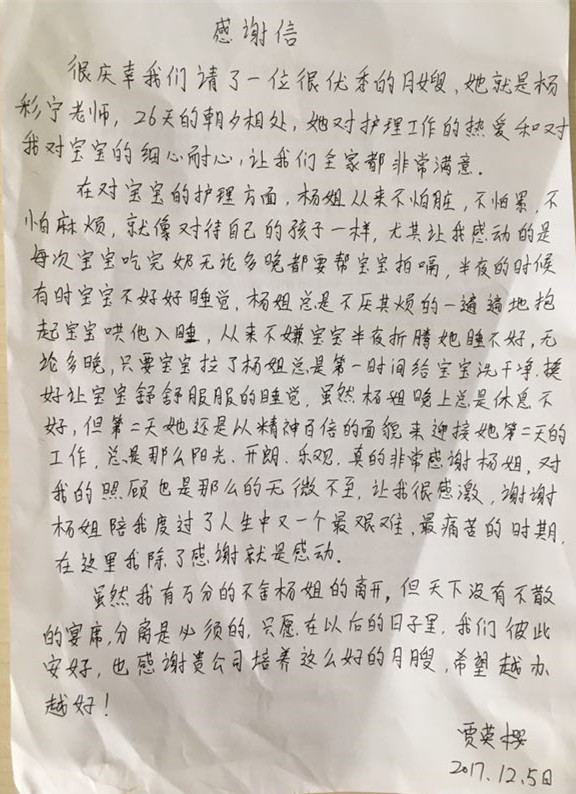 感谢信
很庆幸我们请了一位很优秀的月嫂,她就是杨
彩宁老师,26天的朝夕相处,她对护理工作的热爱和对
我对宝宝的细心耐心,让我们全家都非常满意.
在对宝宝的护理方面,杨姐从来不怕脏,不怕累,不
怕麻烦,就像对待自己的孩子一样,尤其让我感动的是
每次宝宝吃完奶无论多晚都要帮宝宝拍嗝,半夜的时候
有时宝宝不好好睡觉,杨姐总是不厌其烦的一遍遍地抱
起宝宝哄他入睡,从来不嫌宝宝半夜折腾她睡不好,无
论多晚,只要宝宝拉了杨姐总是第一时间给宝宝洗干净.换
好让宝宝舒舒服服的睡觉.虽然杨姐晚上总是休息不
好,但第二天她还是以精神百倍的面貌来迎接她第二天的
工作,总是那么阳光.开朗.乐观.真的非常感谢杨姐,对
我的照顾也是那么的无微不至,让我很感激,谢谢
杨姐陪我度过了人生中又一个最艰难,最痛苦的时期.
在这里我除了感谢就是感动.
虽然我有万分的不舍杨姐的离开,但天下没有不散
的宴席,分离是必须的,只愿在以后的日子里,我们彼此
安好,也感谢贵公司培养这么好的月嫂,希望越办
越好!
贾英樱
2017.12.5日